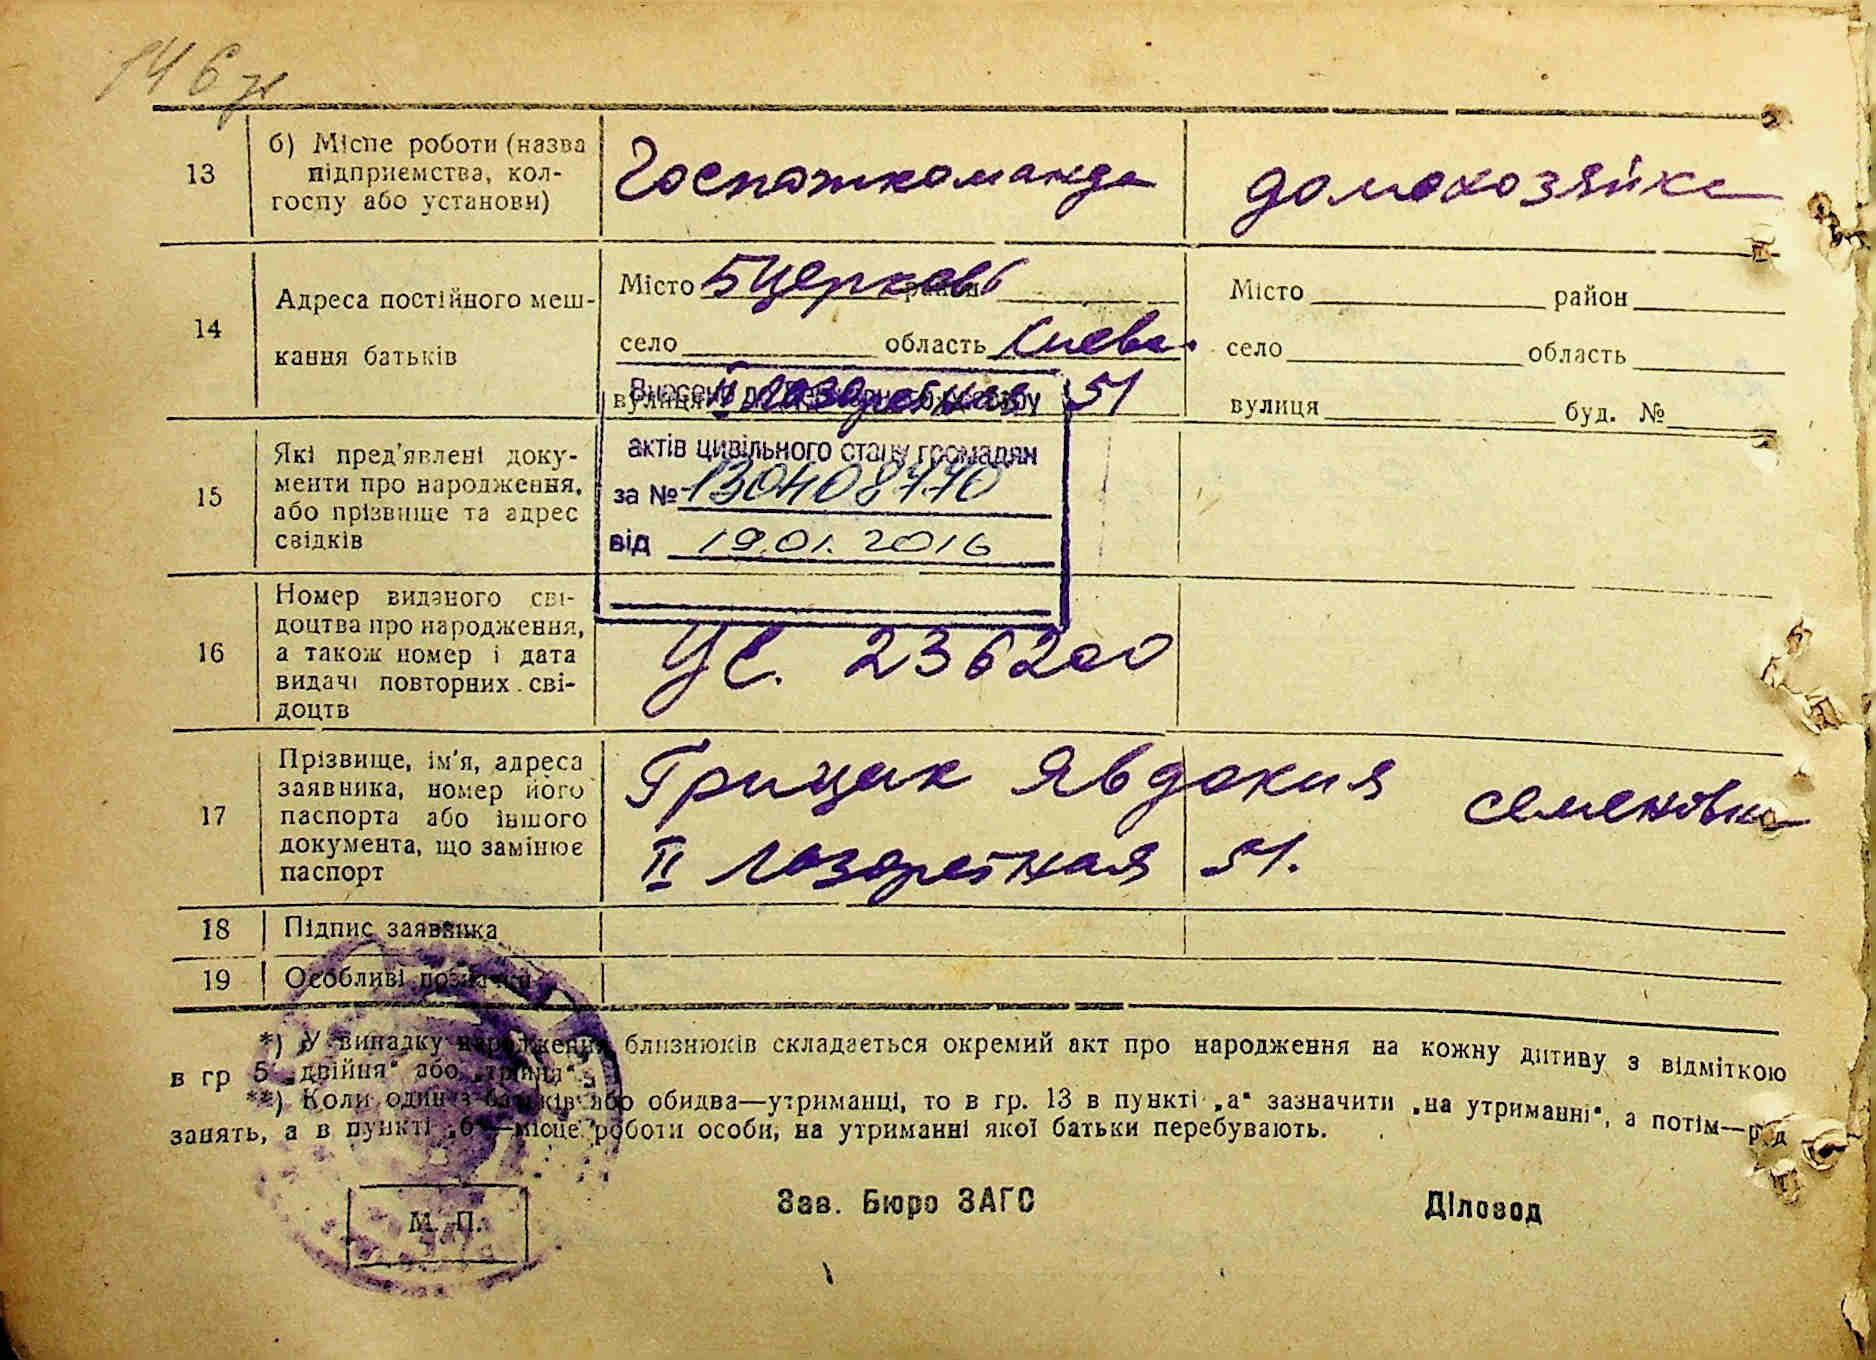 146
13
б) Місце роботи (назва
підприємства, кол-
госпу або установи)
Госпожкоманда
домохозяйка
14
Адреса постійного меш-
кання батьків
Місто БЦерковь район
село область Киевс.
вулиця II Лазаретная 51
Місто район
село область
вулиця буд. №
Внесено до Державного реєстру
актів цивільного стану громадян
за № 130408770
від 19.01.2016
15
Які пред'явлені доку-
менти про народження,
або прізвище та адрес
свідків
16
Номер виданого сві-
доцтва про народження,
а також номер і дата
видачі повторних сві-
доцтв
УС. 236200
17
Прізвище, ім'я, адреса
заявника, номер його
паспорта або іншого
документа, що замінює
паспорт
Грицак Явдокия Семеновна
II Лазаретная 51.
18 Підпис заявника
19 Особливі позначки
*) У випадку народження близнюків складається окремий акт про народження на кожну дитину з відміткою
в гр 5 „двійня“ або „трійня“.
**) Коли один з батьків або обидва—утриманці, то в гр. 13 в пункті „а“ зазначити „на утриманні“, а потім—рід
занять, а в пункті „б“—місце роботи особи, на утриманні якої батьки перебувають.
М. П.
Зав. Бюро ЗАГС
Діловод